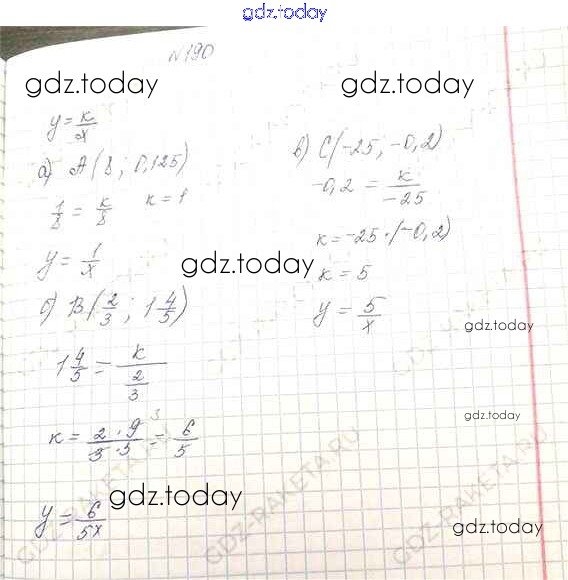 gdz.today
N190
gdz.today
gdz.today
y = k/x
а) A(8; 0,125)
1/8 = k/8   k = 1
y = 1/x
gdz.today
б) B(2/3; 1 4/5)
1 4/5 = k/(2/3)
k = (2 · 9 3)/(3 · 5) = 6/5
y = 6/5x
gdz.today
в) C(-25; -0,2)
-0,2 = k/-25
k = -25 · (-0,2)
k = 5
y = 5/x
gdz.today
gdz.today
gdz.today
GDZ-RAKETA.RU
GDZ-RAKETA.RU